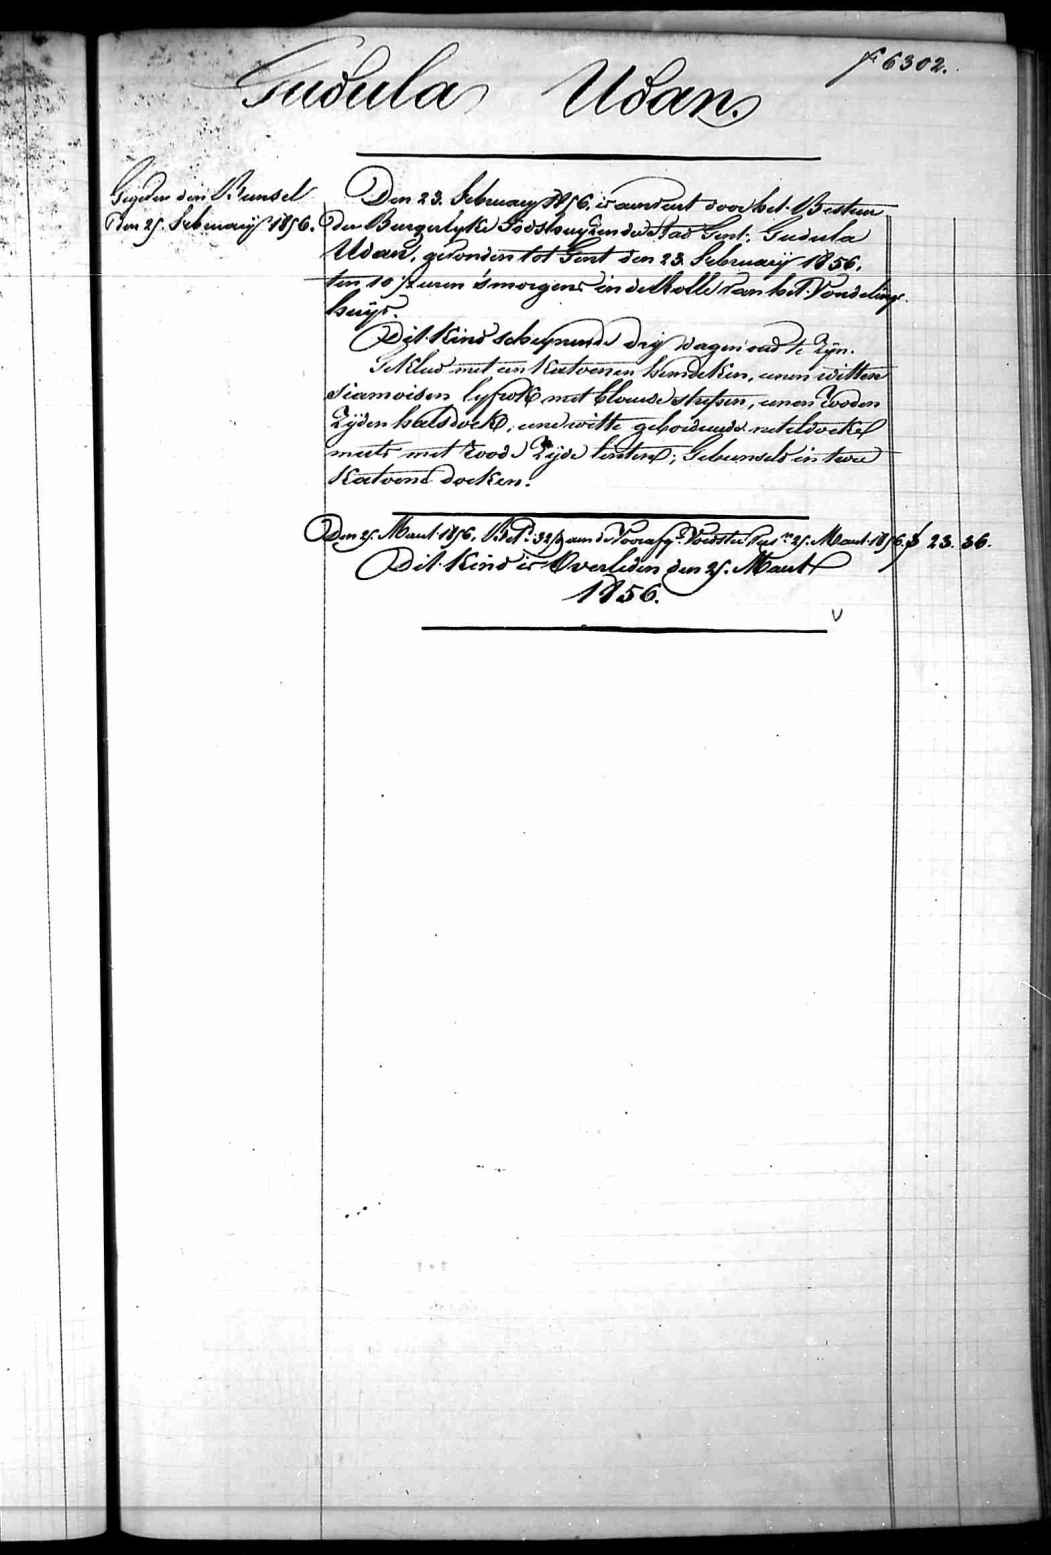 f° 6302.
Gudula Udan.
Gegeven den Bunsel
Den 25. February 1856.
Den 23. February 1856. is aenveert door het Bestuer
Der Burgerlyke Godshuyzen der Stad Gent, Gudula
Udan, gevonden tot Gent den 23 February 1856,
ten 10 ½ uren 's morgens in de Rolle van het Vondeling
huys.
Dit Kind schynende dry dagen oud te Zyn.
Gekleed met een Katoenen hemdeken, eenen witten
siamoisen lyfrok met blauwe strepen, eenen Rooden
Zyden halsdoek, eene witte geborduerde neteldoeke
muts met roode Zyde linten; Gebunseld in twee
Katoene doeken.
Den 25 Maert 1856, Bet. aen de Voorsz. Voedster 25. Maert 1856. f 23. 36.
Dit Kind is Overleden den 25. Maert
1856.
V